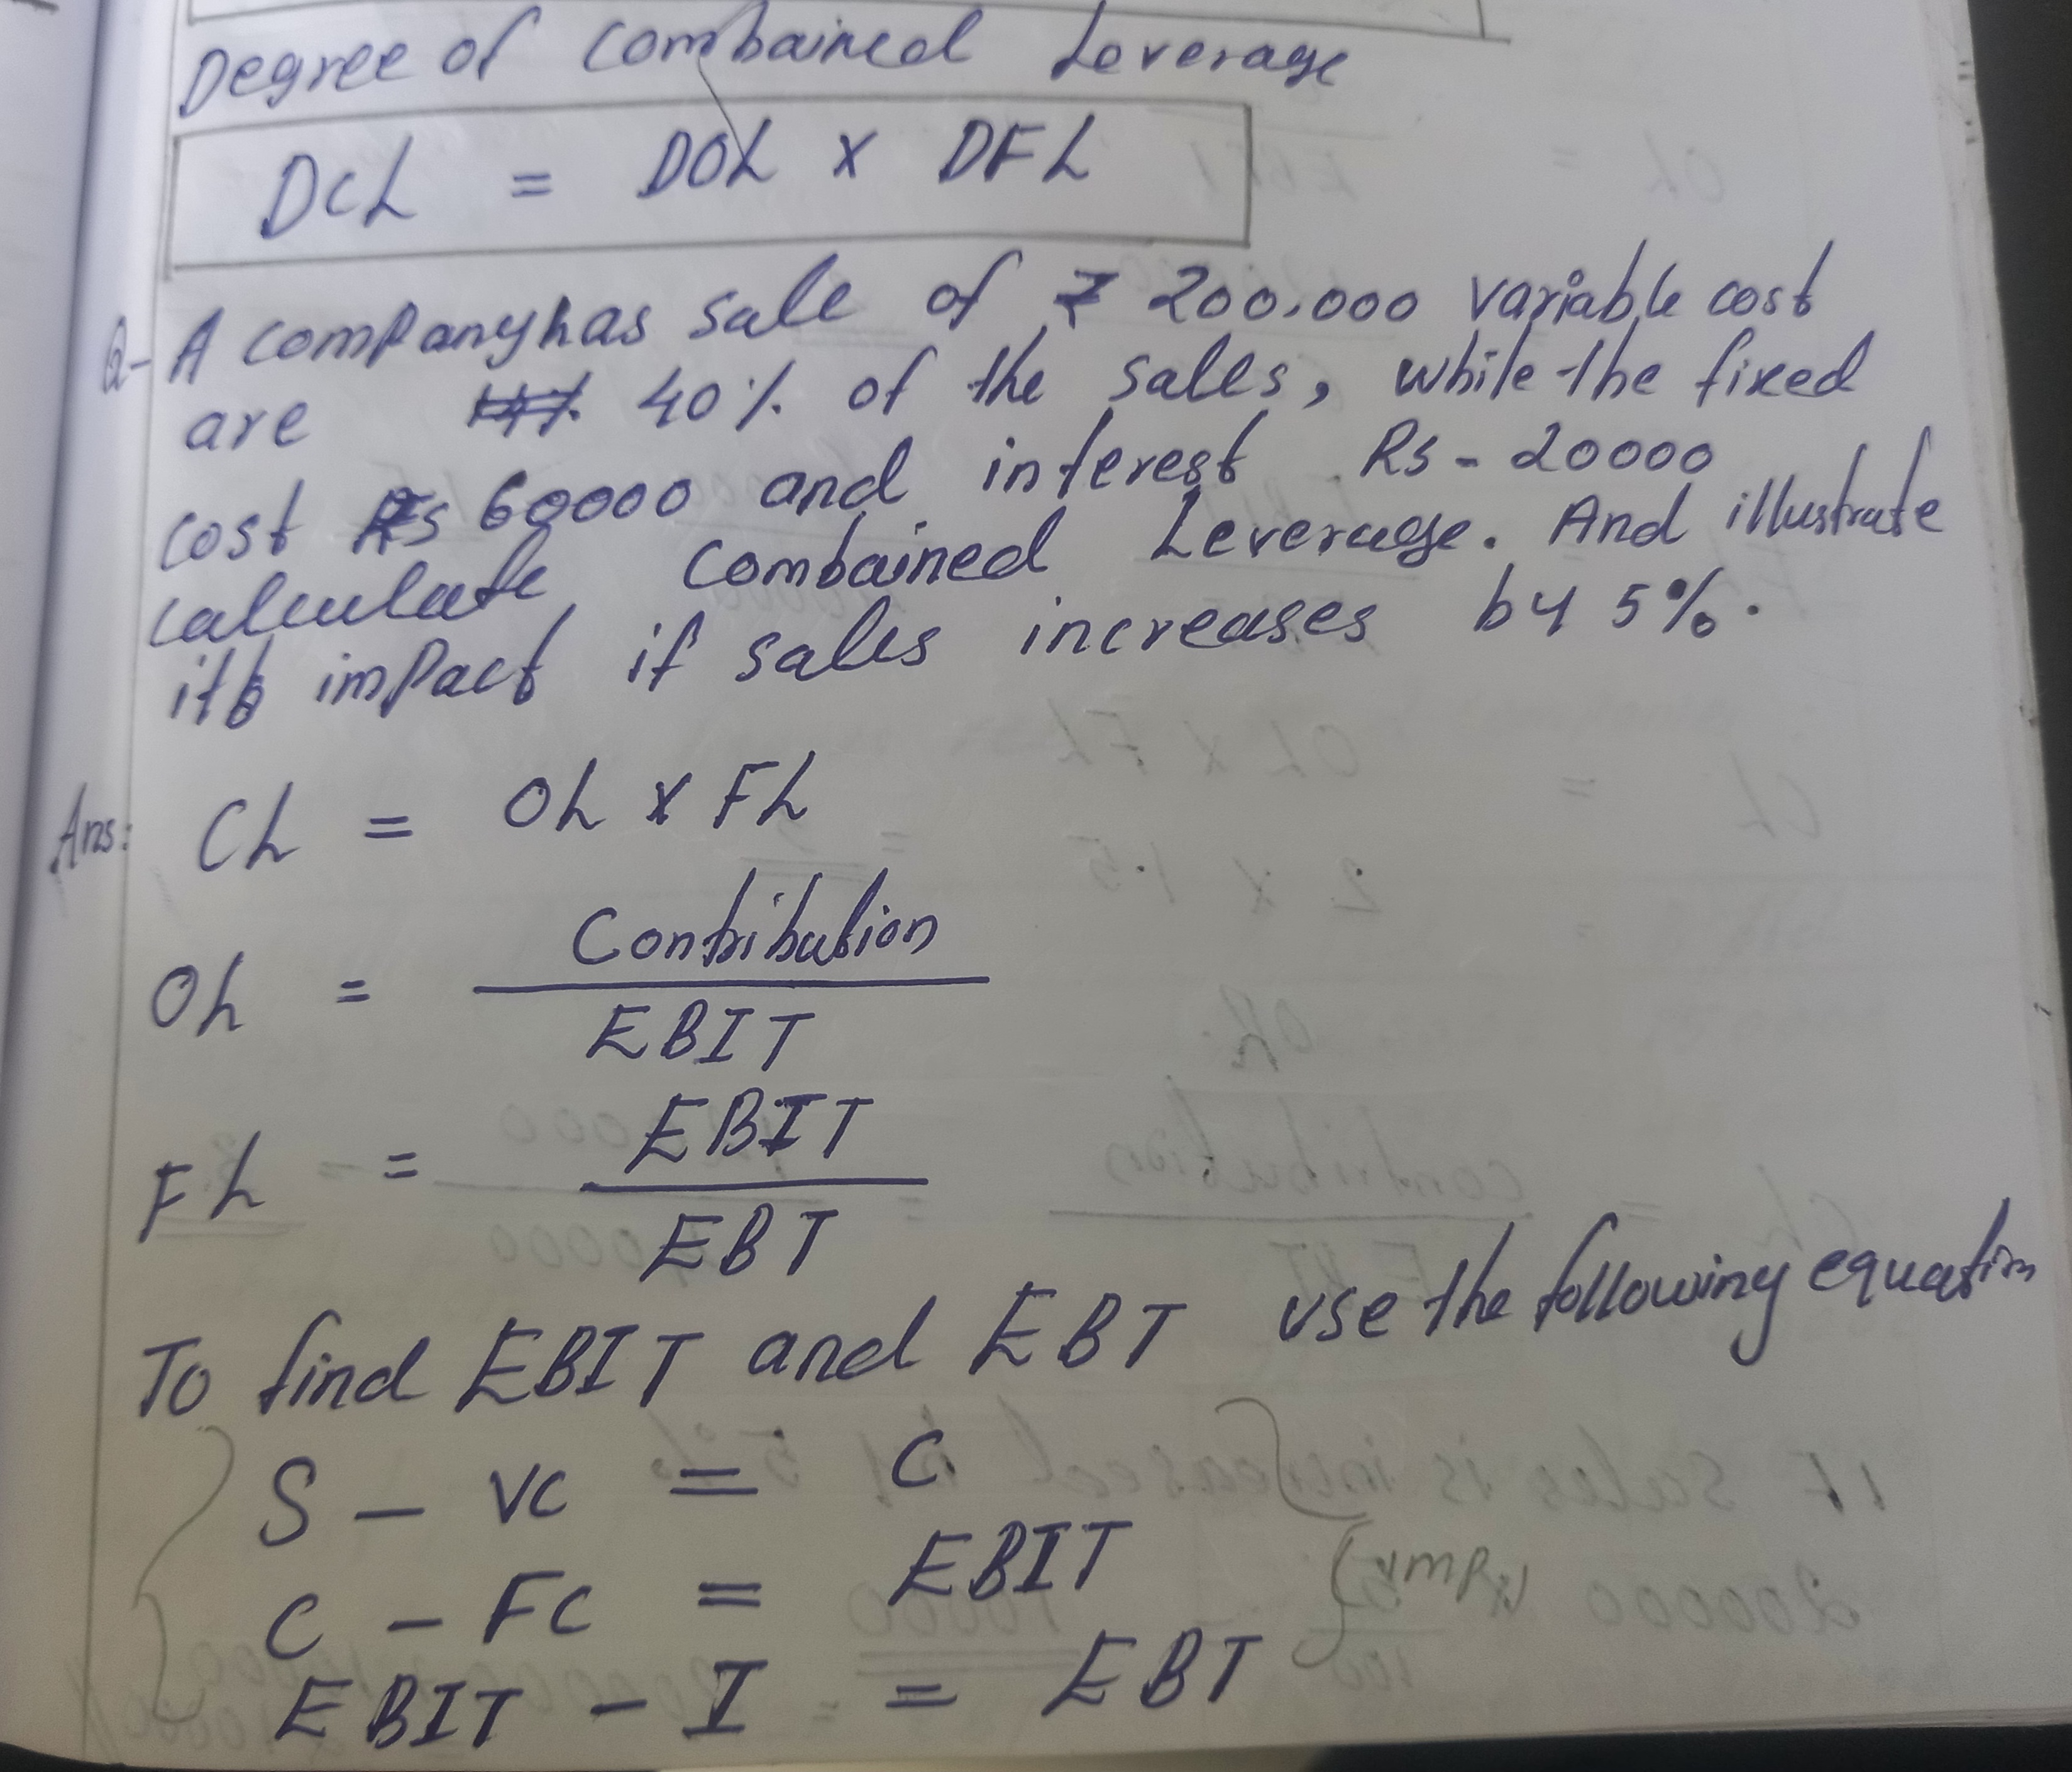 Degree of Combained Leverage
DCL = DOL X DFL
Q- A company has sale of ₹ 200,000 variable cost
are 40% of the sales, while the fixed
cost Rs 60000 and interest Rs - 20000
calculate Combained Leverage. And illustrate
its impact if sales increases by 5%.
Ans: CL = OL X FL
OL = Contribution
EBIT
FL = EBIT
EBT
To find EBIT and EBT use the following equation
S - VC = C
C - FC = EBIT
EBIT - I = EBT